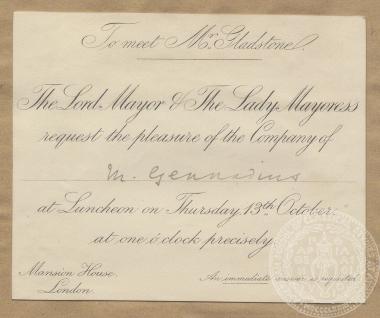 To meet Mr. Gladstone.
The Lord Mayor & The Lady Mayoress
request the pleasure of the Company of
M. Gennadius
at Luncheon on Thursday, 13th October,
at one o'clock precisely.
Mansion House,
London.
An immediate answer is requested.